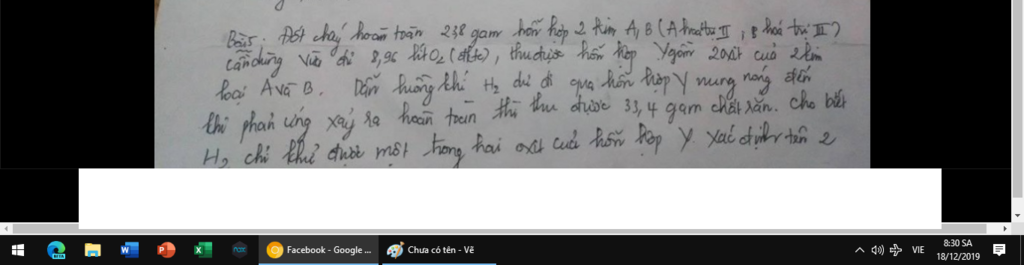 Bài 5. Đốt cháy hoàn toàn 23,8 gam hỗn hợp 2 kim A, B (A hoá trị II, B hoá trị III)
cần dùng vừa đủ 8,96 lít O2 (đktc), thu được hỗn hợp Y gồm 2 oxit của 2 kim
loại A và B. Dẫn luồng khí H2 dư đi qua hỗn hợp Y nung nóng đến
khi phản ứng xảy ra hoàn toàn thì thu được 33,4 gam chất rắn. Cho biết
H2 chỉ khử được một trong hai oxit của hỗn hợp Y. Xác định tên 2
Facebook - Google ...
Chưa có tên - Vẽ
VIE
8:30 SA
18/12/2019